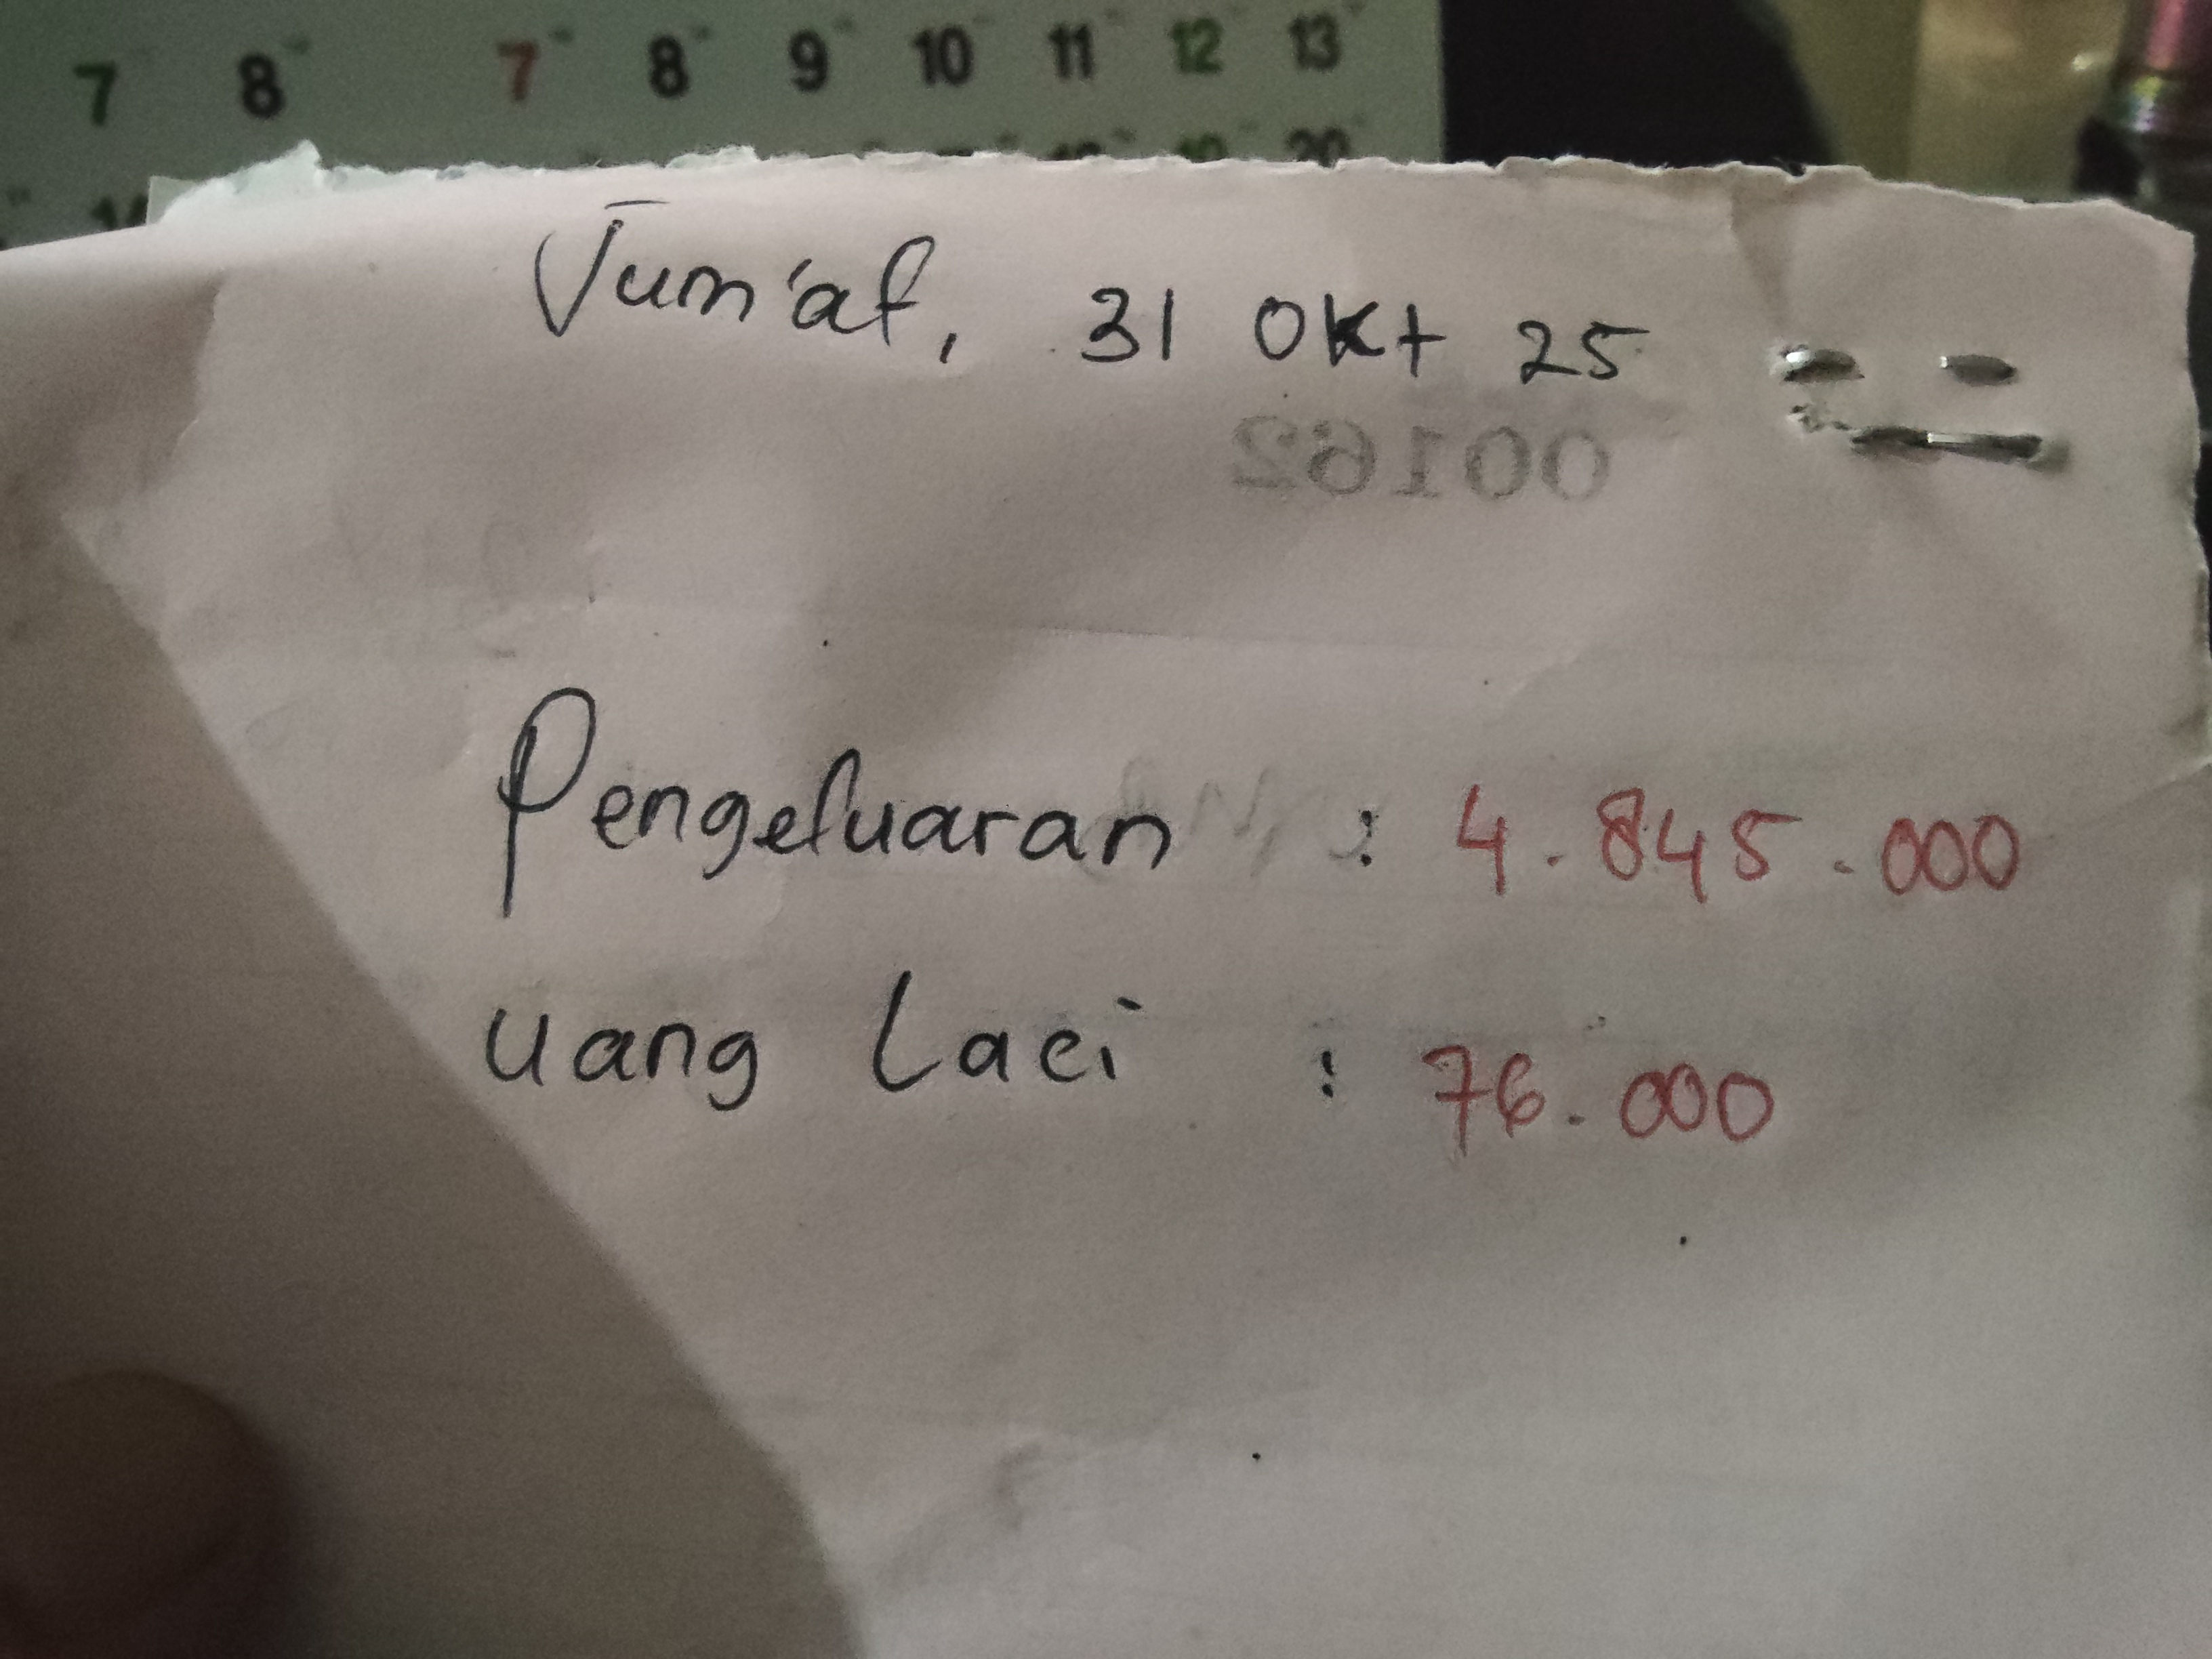 7 8 7 8 9 10 11 12 13
19 20
Jum'at, 31 Okt 25
00162
Pengeluaran : 4.845.000
Uang Laci : 76.000